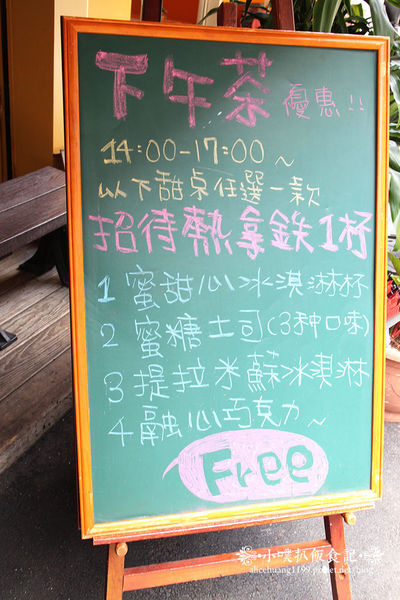 下午茶優惠!!
14:00-17:00~
以下甜点任選一款
招待熱拿鉄1杯
1 蜜甜心冰淇淋杯
2 蜜糖土司(3种口味)
3 提拉米蘇冰淇淋
4 融心巧克力~
Free
小噗趴飯食記
ahcchuang1199.pixnet.net/blog